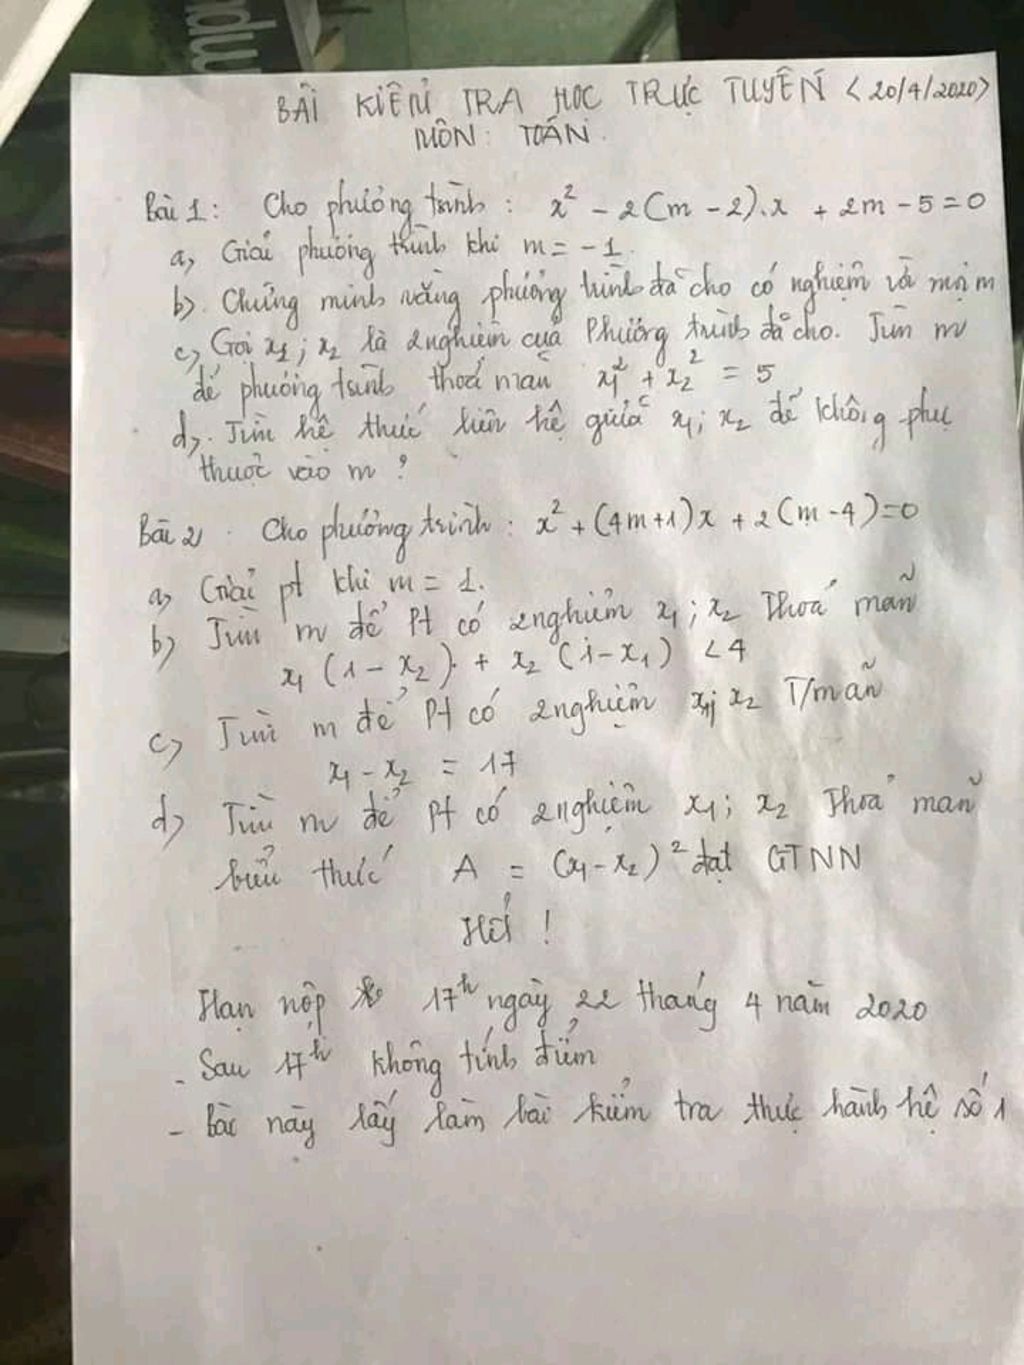 BÀI KIỂM TRA HỌC TRỰC TUYẾN <20/4/2020>
MÔN: TOÁN.
Bài 1: Cho phương trình: x² - 2(m-2).x + 2m-5=0
a, Giải phương trình khi m=-1.
b). Chứng minh rằng phương trình đã cho có nghiệm với mọi m
c, Gọi x1; x2 là 2 nghiệm của Phương trình đã cho. Tìm m
để phương trình thoả mãn x1² + x2² = 5
d,. Tìm hệ thức liên hệ giữa x1; x2 để không phụ
thuộc vào m?
Bài 2/ . Cho phương trình: x² + (4m+1)x + 2(m-4)=0
a, Giải pt khi m=1.
b) Tìm m để Pt có 2 nghiệm x1; x2 Thoả mãn
x1 (1-x2) + x2 (1-x1) < 4
c, Tìm m để Pt có 2 nghiệm x1; x2 T/mãn
x1 - x2 = 17
d, Tìm m để Pt có 2 nghiệm x1; x2 Thoả mãn
biểu thức A = (x1-x2)² đạt GTNN
Hết !
Hạn nộp 17h ngày 22 tháng 4 năm 2020
- Sau 17h không tính điểm
- Bài này lấy làm bài kiểm tra thực hành hệ số 1